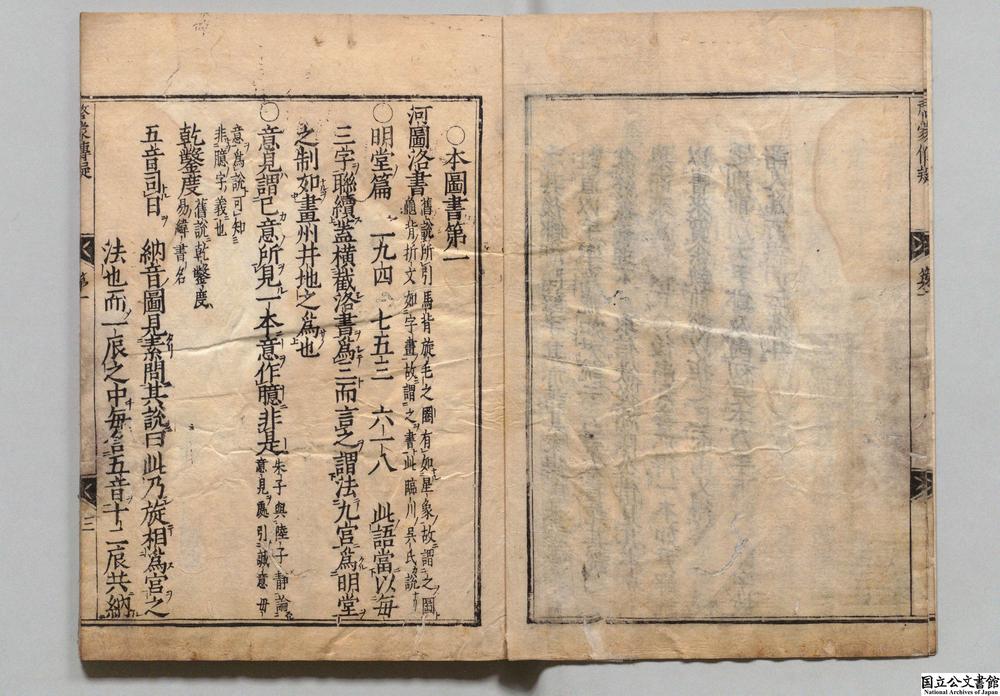 ○本圖書第一
河圖洛書 舊說所引馬背旋毛之圈有如星象故謂之圖
龜背折文如字畫故謂之書此臨川吳氏說
○明堂篇 二九四 七五三 六一八 此語當以每
三字聯續蓋橫截洛書爲三而言之謂法九宮爲明堂
之制如畫州井地之爲也
○意見謂已意所見一本意作臆非是 朱子與陸子靜論
意見處引誠意毋
意爲說可知
非臆字義也
乾鑿度 舊說乾鑿度
易緯書名
五音司日 納音圖見素問其說曰此乃旋相爲宮之
法也而一辰之中每含五音十二辰共納
啓蒙傳疑
第一
三
國立公文書館
National Archives of Japan